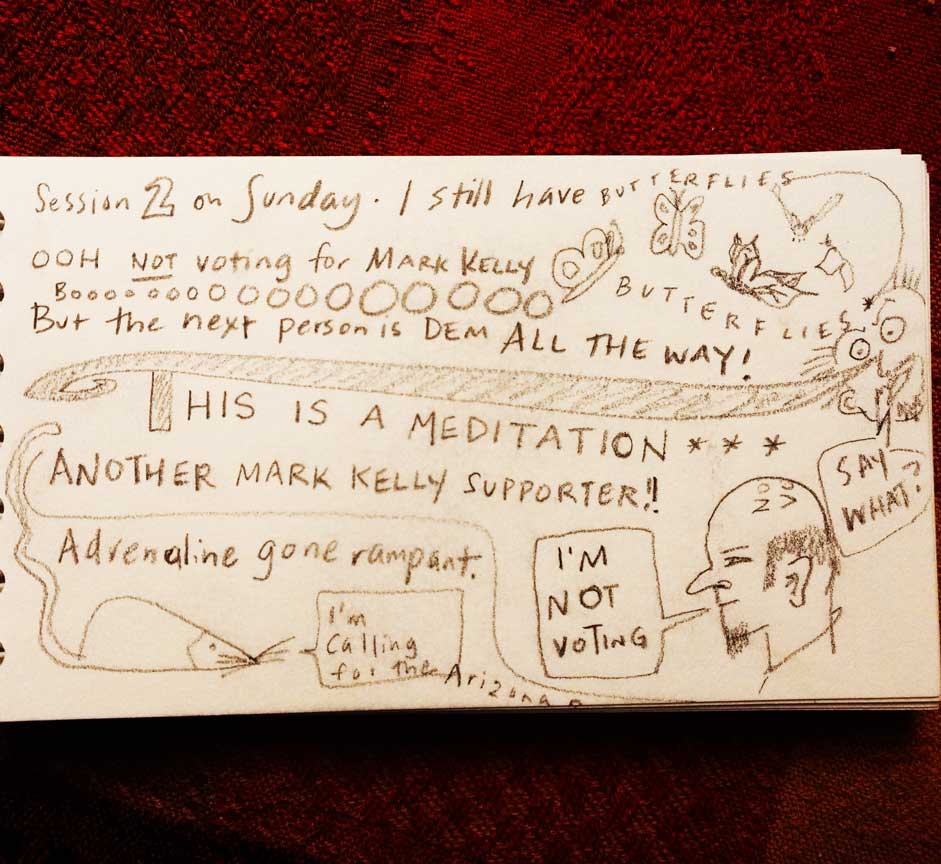 Session 2 on Sunday. I still have BUTTERFLIES
OOH NOT voting for MARK KELLY
BUTTERFLIES*
BoooooooooOOOOOOOOOO
But the next person is DEM ALL THE WAY!
THIS IS A MEDITATION ***
ANOTHER MARK KELLY SUPPORTER!!
SAY
WHAT?
Adrenaline gone rampant.
I'M
NOT
VOTING
I'm
Calling
for the Arizona